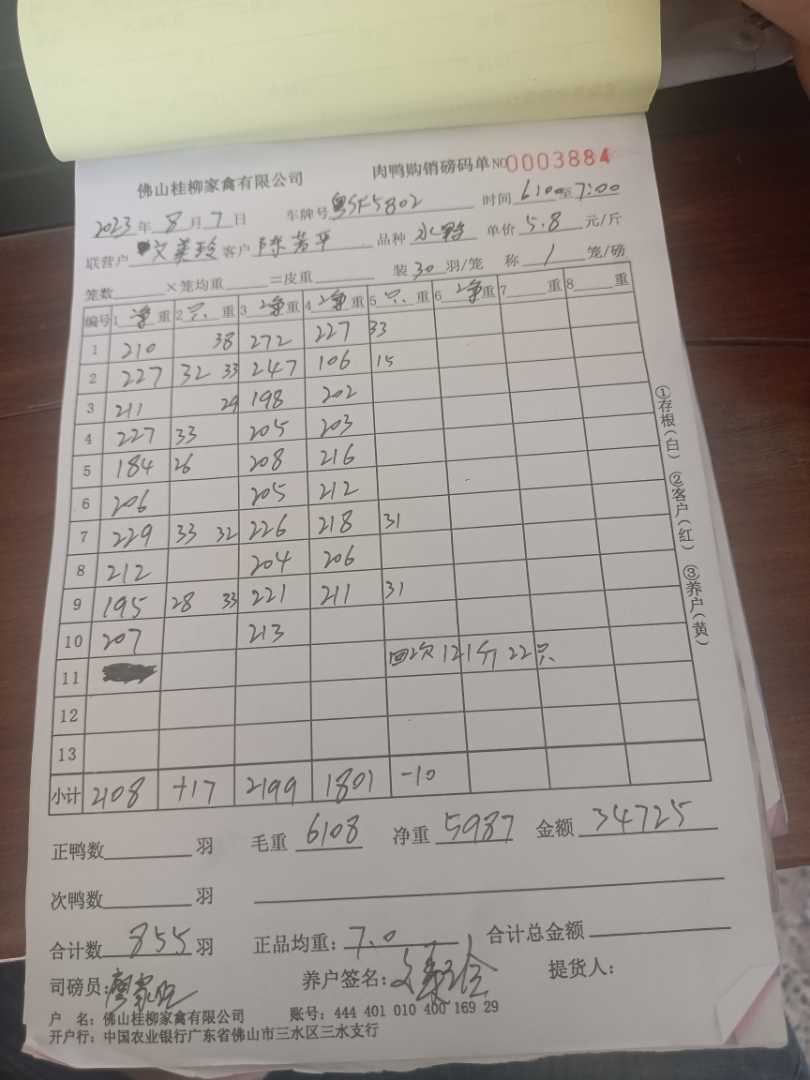 佛山桂柳家禽有限公司 肉鸭购销磅码单 NO 0003884
2023年8月7日 车牌号粤SF5802 时间6:00至7:00
联营户文美玲 客户陈芳平 品种水鸭 单价5.8元/斤
笼数 ×笼均重 =皮重 装30羽/笼 称1笼/磅
编号 1净重 2只重 3净重 4净重 5只重 6净重 7重 8重
1 210 38 272 227 33
2 227 32 33 247 106 15
3 211 29 198 202
4 227 33 205 203
5 184 26 208 216
6 206 205 212
7 229 33 32 226 218 31
8 212 204 206
9 195 28 33 221 211 31
10 207 213
11 回次121斤22只
12
13
小计 2108 +17 2199 1801 -10
正鸭数 羽 毛重6108 净重5987 金额34725
次鸭数 羽
合计数855羽 正品均重:7.0 合计总金额
司磅员: 养户签名: 提货人:
户 名:佛山桂柳家禽有限公司 账号:444 401 010 400 169 29
开户行:中国农业银行广东省佛山市三水区三水支行
①存根(白) ②客户(红) ③养户(黄)